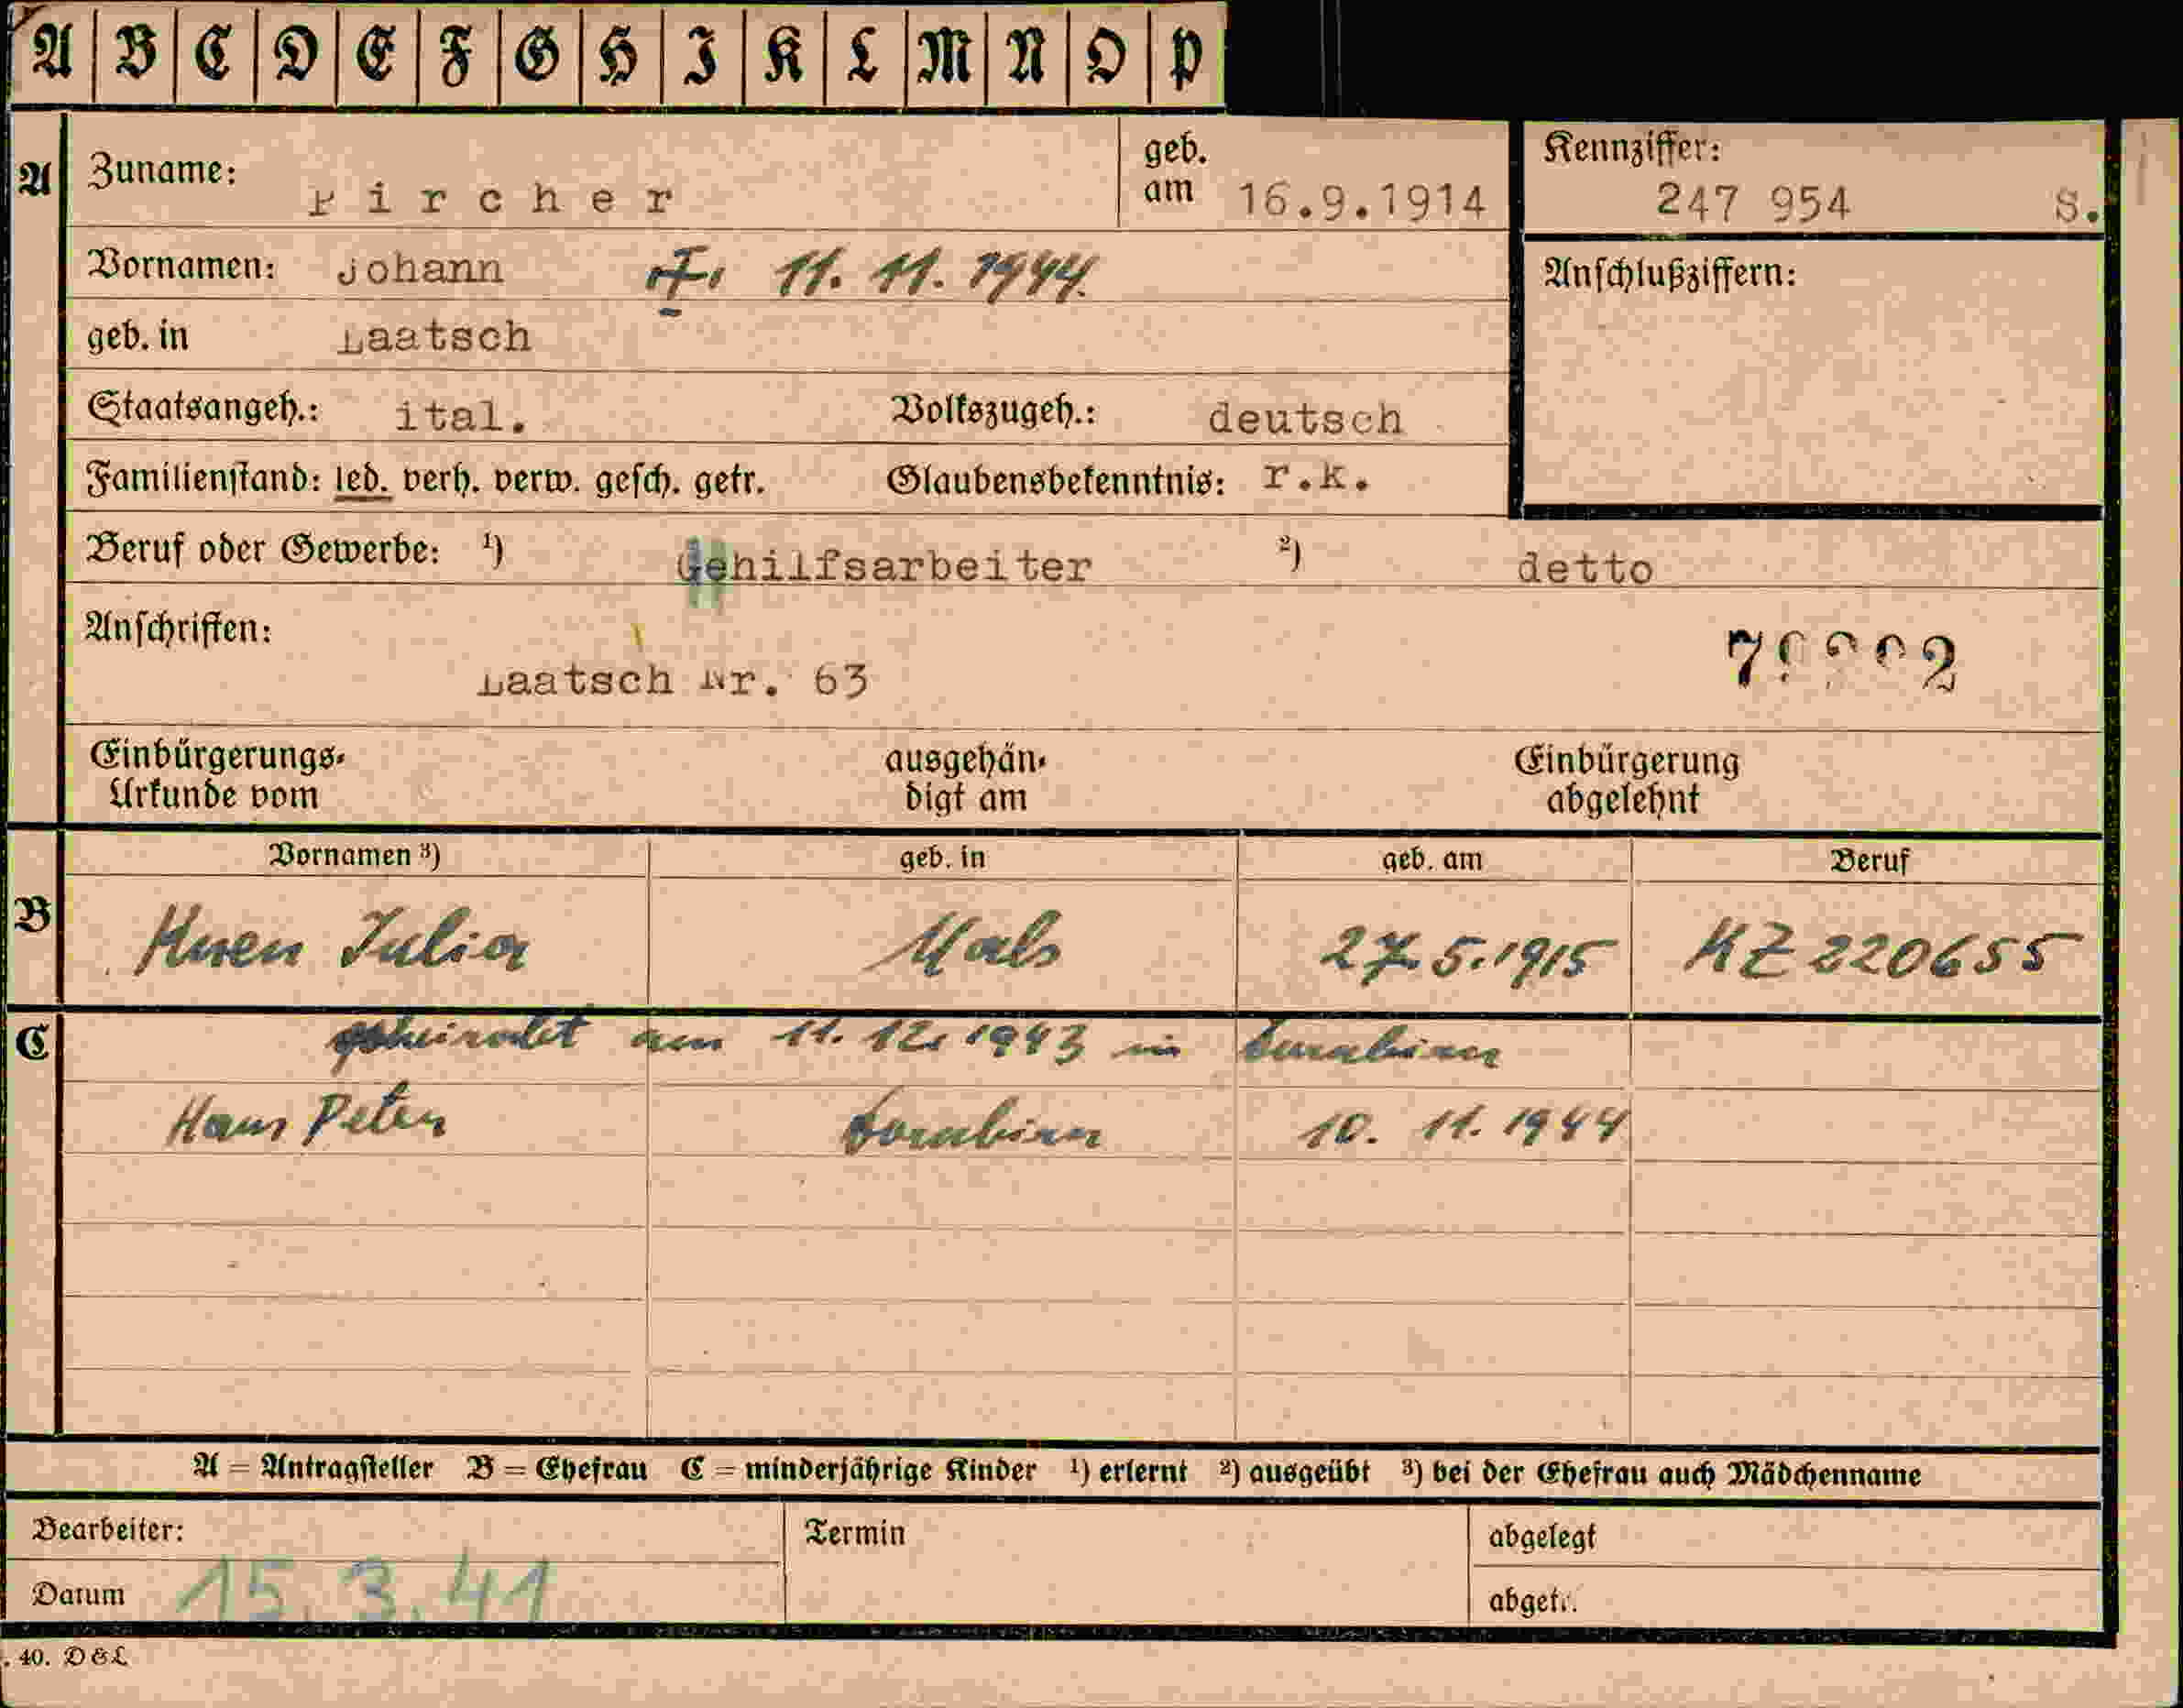 A B C D E F G H I K L M N O P
A Zuname: Pircher geb. am 16.9.1914 Kennziffer: 247 954 S.
Vornamen: Johann 11. 11. 1944. Anschlußziffern:
geb. in Laatsch
Staatsangeh.: ital. Volkszugeh.: deutsch
Familienstand: led. verh. verw. gesch. getr. Glaubensbekenntnis: r.k.
Beruf oder Gewerbe: 1) Gehilfsarbeiter 2) detto
Anschriften:
Laatsch Nr. 63
Einbürgerungs-Urkunde vom ausgehän-digt am Einbürgerung abgelehnt
Vornamen 3) geb. in geb. am Beruf
B Julia Mals 27.5.1915 KZ 220655
C geheiratet am 11. 12. 1943 in Dornbirn
Hans Peter Dornbirn 10. 11. 1944
A = Antragsteller B = Ehefrau C = minderjährige Kinder 1) erlernt 2) ausgeübt 3) bei der Ehefrau auch Mädchenname
Bearbeiter: Termin abgelegt
Datum 15. 3. 41 abgetr.
. 40. D & L